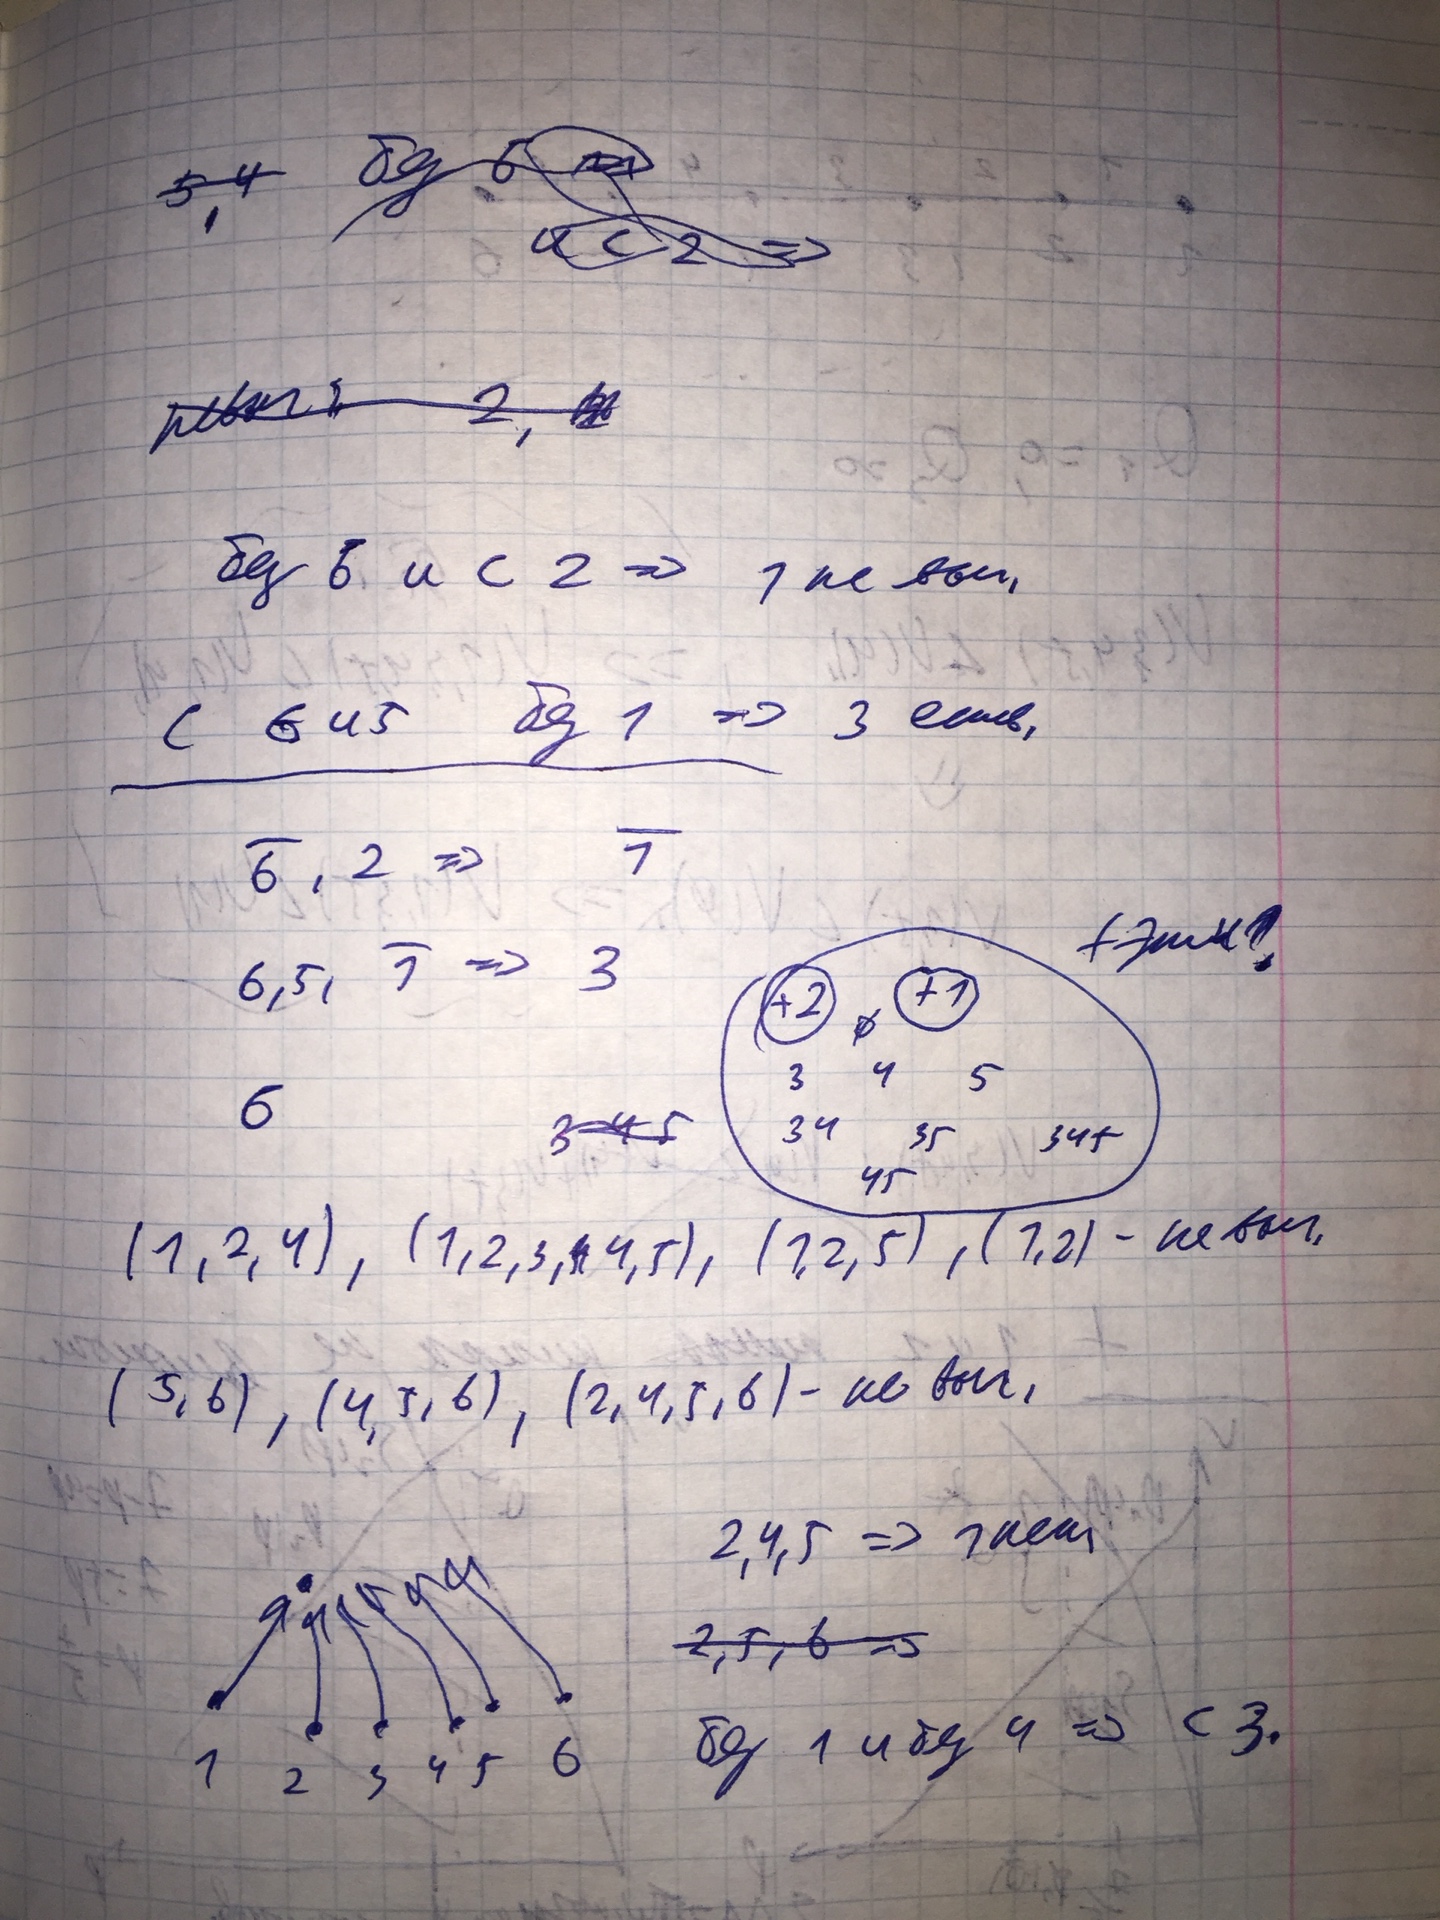 5,4 без 6 =>
и с 2 =>
невып: 2,
без 6 и с 2 => 1 не вып.
с 6 и 5 без 1 => 3 есть.
6̅, 2 => 1̅
6,5, 1̅ => 3
+ эти!
+2 ∅ +1
3 4 5
6
3 4 5
34 35 345
45
(1,2,4), (1,2,3,4,5), (1,2,5), (1,2) - не вып.
(5,6), (4,5,6), (2,4,5,6) - не вып.
2,4,5 => 1 нет
2,5,6 =>
без 1 и без 4 => с 3.
1 2 3 4 5 6